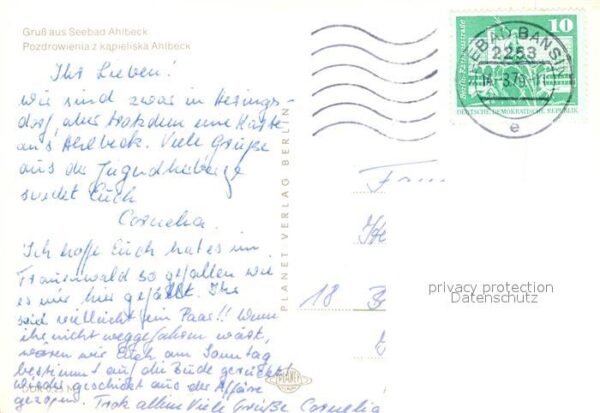 Gruß aus Seebad Ahlbeck
Pozdrowienia z kąpieliska Ahlbeck
Ihr Lieben!
Wir sind zwar in Herings-
dorf, aber trotzdem eine Karte
aus Ahlbeck. Viele Grüße
aus der Jugendherberge
sendet Euch
Cornelia.
Ich hoffe Euch hat es im
Frauenwald so gefallen wie
es mir hier gefällt. Ihr
seid vielleicht ein Paar!! Wenn
ihr nicht weggefahren wärt,
wären wir Euch am Sonntag
bestimmt auf die Bude gerückt!
wieder geschickt aus der Affäre
gezogen. Trotz allem Viele Grüße Cornelia
PLANET VERLAG BERLIN
PLANET
10
DEUTSCHE DEMOKRATISCHE REPUBLIK
SEEBAD BANSIN
2253
e
18
privacy protection
Datenschutz